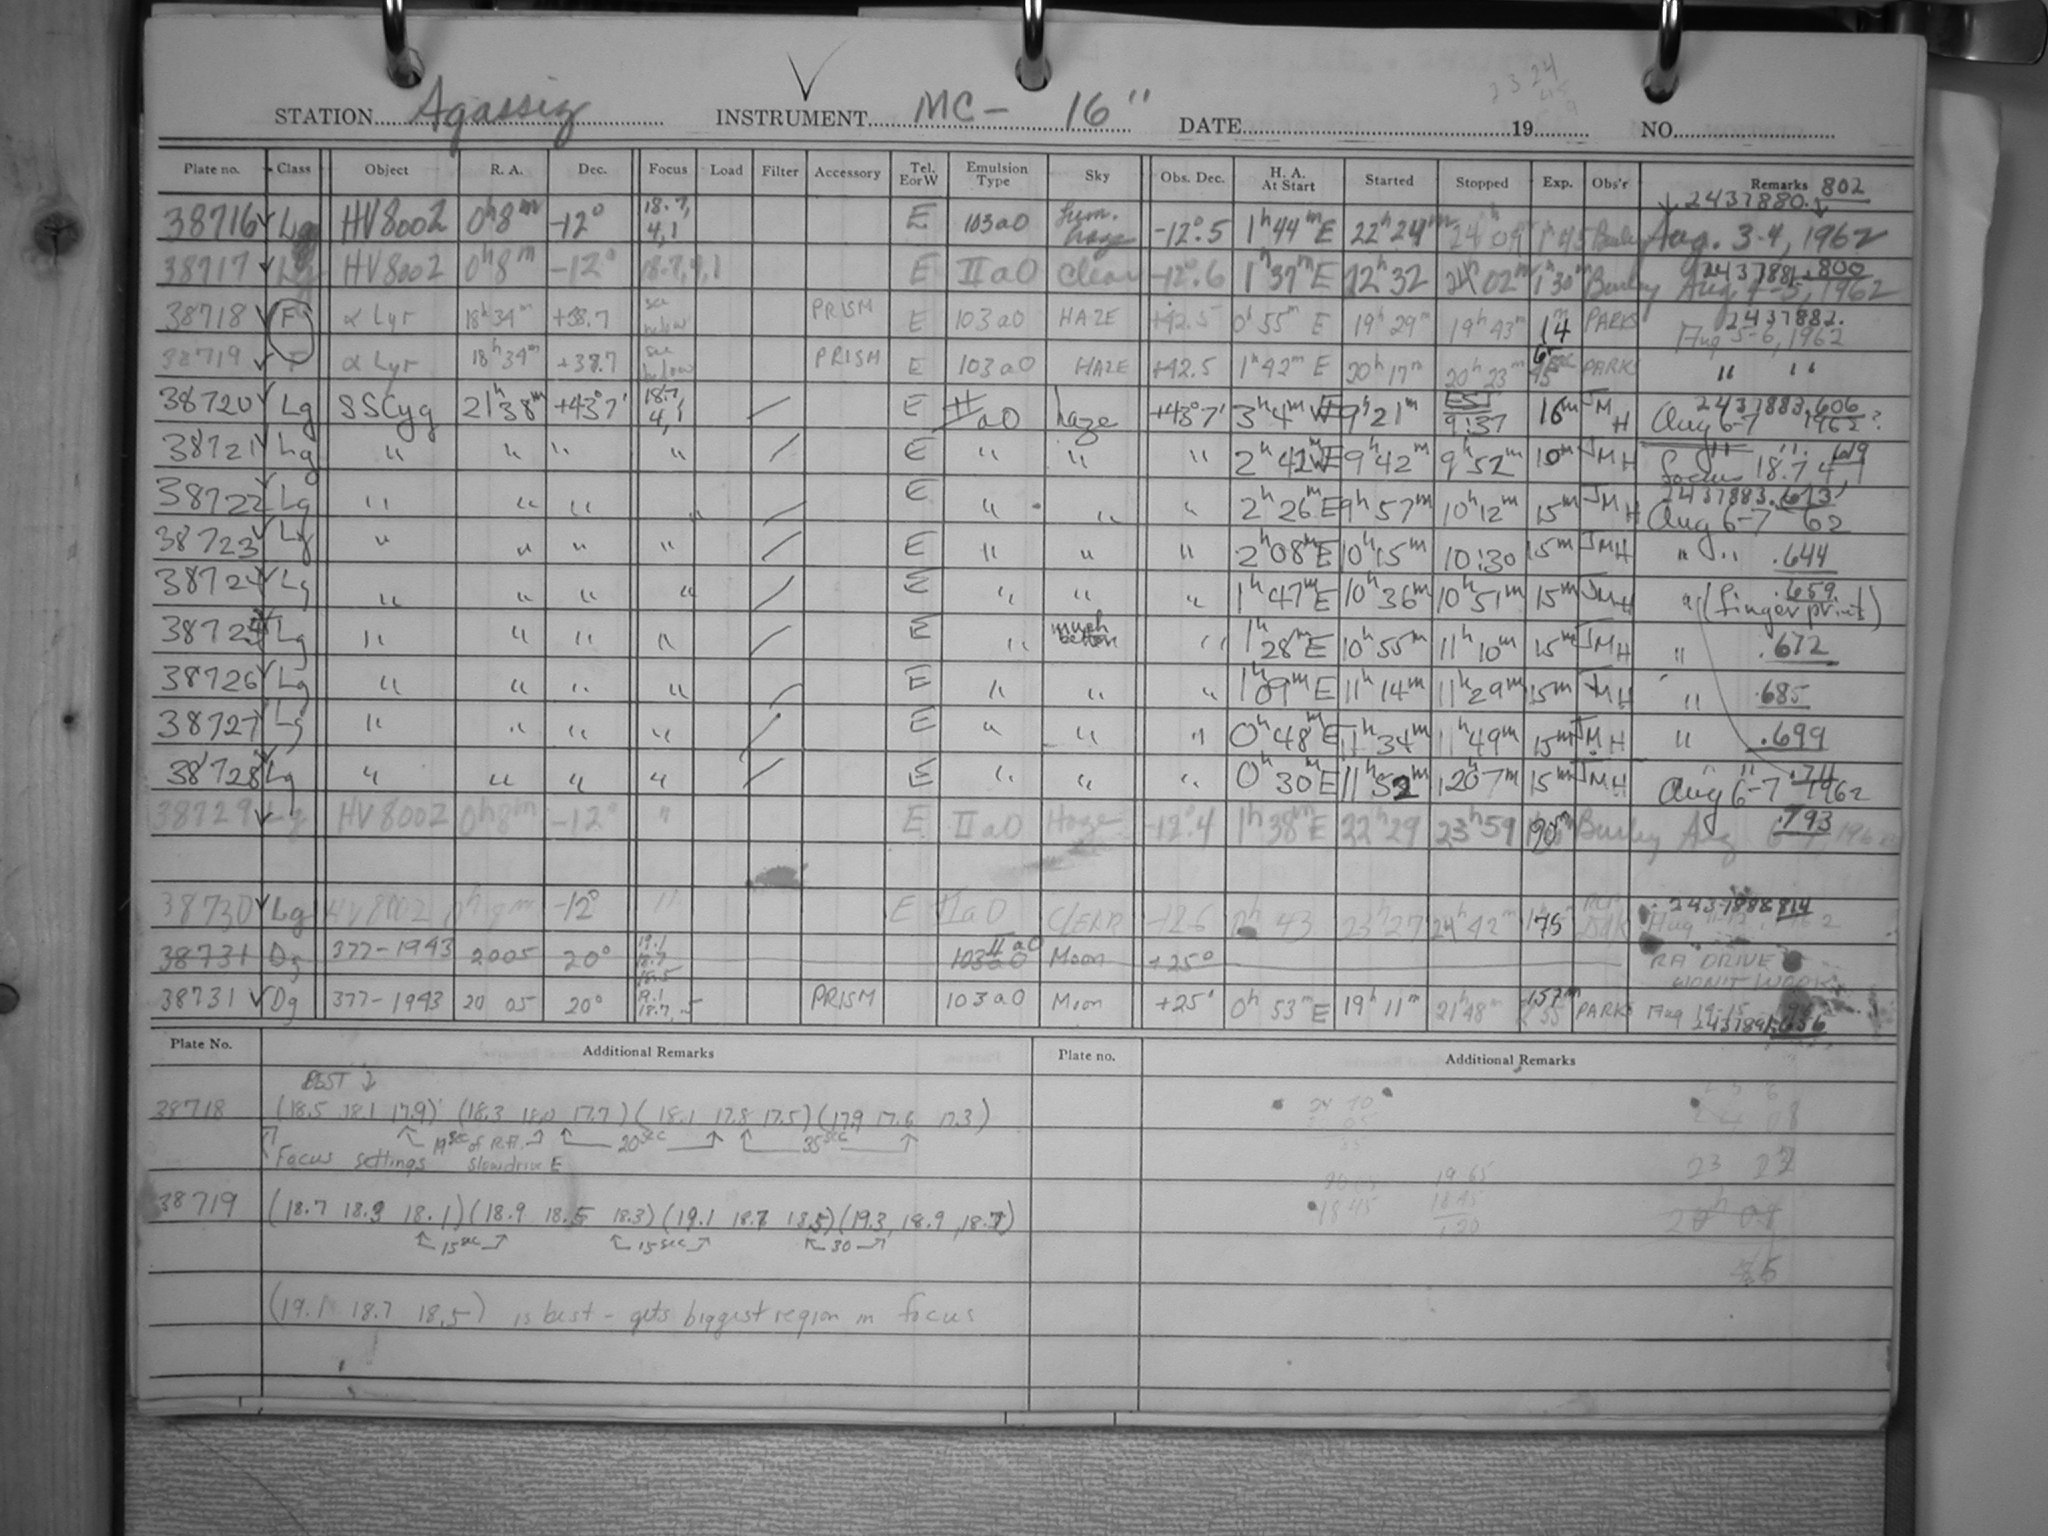 STATION Agassiz INSTRUMENT MC- 16" DATE 19 NO.
Plate no. Class Object R. A. Dec. Focus Load Filter Accessory Tel. E or W Emulsion Type Sky Obs. Dec. H. A. At Start Started Stopped Exp. Obs'r Remarks
2437880.802
38716 Lg HV8002 0h8m -12° 18.7, 4,1 E 103a0 haze -12°.5 1h44mE 22h24m 24h09m 1h45 Aug. 3-4, 1962
2437881.800
38717 Lg HV8002 0h8m -12° 18.7, 4,1 E IIa0 Clear -12°.6 1h37mE 22h32 24h02m 1h30m Burley Aug 4-5, 1962
2437882.
38718 F α Lyr 18h34m +38.7 see below PRISM E 103a0 HAZE +42.5 0h55m E 19h29m 19h43m 14m PARKS Aug 5-6, 1962
38719 F α Lyr 18h34m +38.7 see below PRISM E 103a0 HAZE +42.5 1h42m E 20h17m 20h23m PARKS " "
2437883.606
38720 Lg SSCyg 21h38m +43°7' 18.7, 4,1 / E IIa0 haze +43°7' 3h4m E 9h21m EST 9:37 16m JMH Aug 6-7 1962?
38721 Lg " " " " / E " " " 2h42mE 9h42m 9h52m 10m JMH " " .619 focus 18.7 4,1
2437883.
38722 Lg " " " " / E " " " 2h26mE 9h57m 10h12m 15m JMH Aug 6-7 62
38723 Lg " " " " / E " " " 2h08mE 10h15m 10:30 15m JMH " " .644
38724 Lg " " " " / E " " " 1h47mE 10h36m 10h51m 15m JMH " .659 (finger prints)
38725 Lg " " " " / E " much better " 1h28mE 10h55m 11h10m 15m JMH " .672
38726 Lg " " " " / E " " " 1h09mE 11h14m 11h29m 15m JMH " .685
38727 Lg " " " " / E " " " 0h48mE 11h34m 11h49m 15m JMH " .699
38728 Lg " " " " / E " " " 0h30mE 11h52m 12h07m 15m JMH " " .711 Aug 6-7 1962
38729 Lg HV8002 0h8m -12° " E IIa0 Haze -12°.4 1h38mE 22h29 23h59 90m Burley Aug 6-7, 196 .793
38730 Lg HV8002 0h8m -12° " E IIa0 CLEAR -12.6 43 23h27 24h42m 75 Aug 1962 .814
38731 Dg 377-1943 2005 20° 19.1 18.7 18.5 103a0 IIa0 Moon +25° RA DRIVE WON'T WORK
38731 Dg 377-1943 20 05 20° 19.1 18.7, .5 PRISM 103a0 Moon +25° 0h53mE 19h11m 21h48m 157m PARKS Aug 14-15 2437891.656
Plate No. Additional Remarks Plate no. Additional Remarks
BEST ↓
38718 (18.5 18.1 17.9) (18.3 18.0 17.7) (18.1 17.8 17.5) (17.9 17.6 17.3)
19sec of R.A. 20sec 35sec
Focus settings slow drive E
38719 (18.7 18.3 18.1) (18.9 18.5 18.3) (19.1 18.7 18.5) (19.3, 18.9, 18.7)
15sec 15sec 30
(19.1 18.7 18.5) is best - gets biggest region in focus